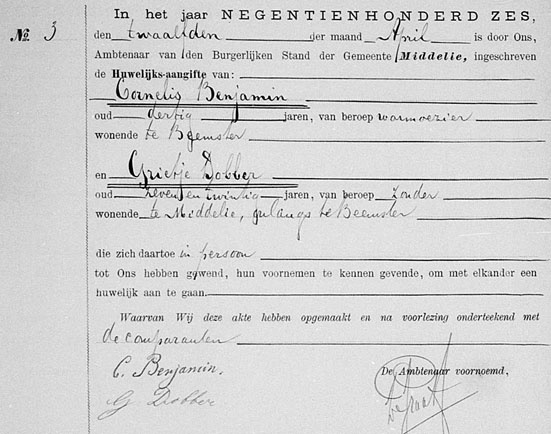 № 3
In het jaar NEGENTIENHONDERD ZES,
den twaalfden der maand April is door Ons,
Ambtenaar van den Burgerlijken Stand der Gemeente Middelie, ingeschreven
de Huwelijks-aangifte van:
Cornelis Benjamin
oud dertig jaren, van beroep warmoezier
wonende te Beemster
en Grietje Dobber
oud zeven en twintig jaren, van beroep zonder
wonende te Middelie, onlangs te Beemster
die zich daartoe in persoon
tot Ons hebben gewend, hun voornemen te kennen gevende, om met elkander een
huwelijk aan te gaan.
Waarvan Wij deze akte hebben opgemaakt en na voorlezing onderteekend met
de comparanten
C. Benjamin.
De Ambtenaar voornoemd,
G. Dobber